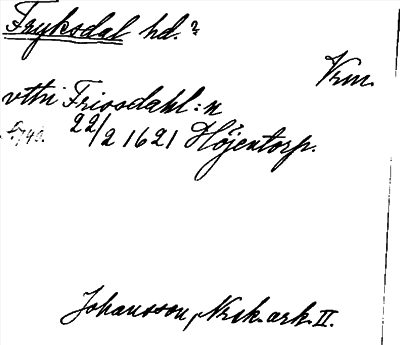 Fryksdal hd.?
Vrm.
vthi Friosdahl:n
22/2 1621 Höjentorp.
Johansson, Nrk. ark. II.